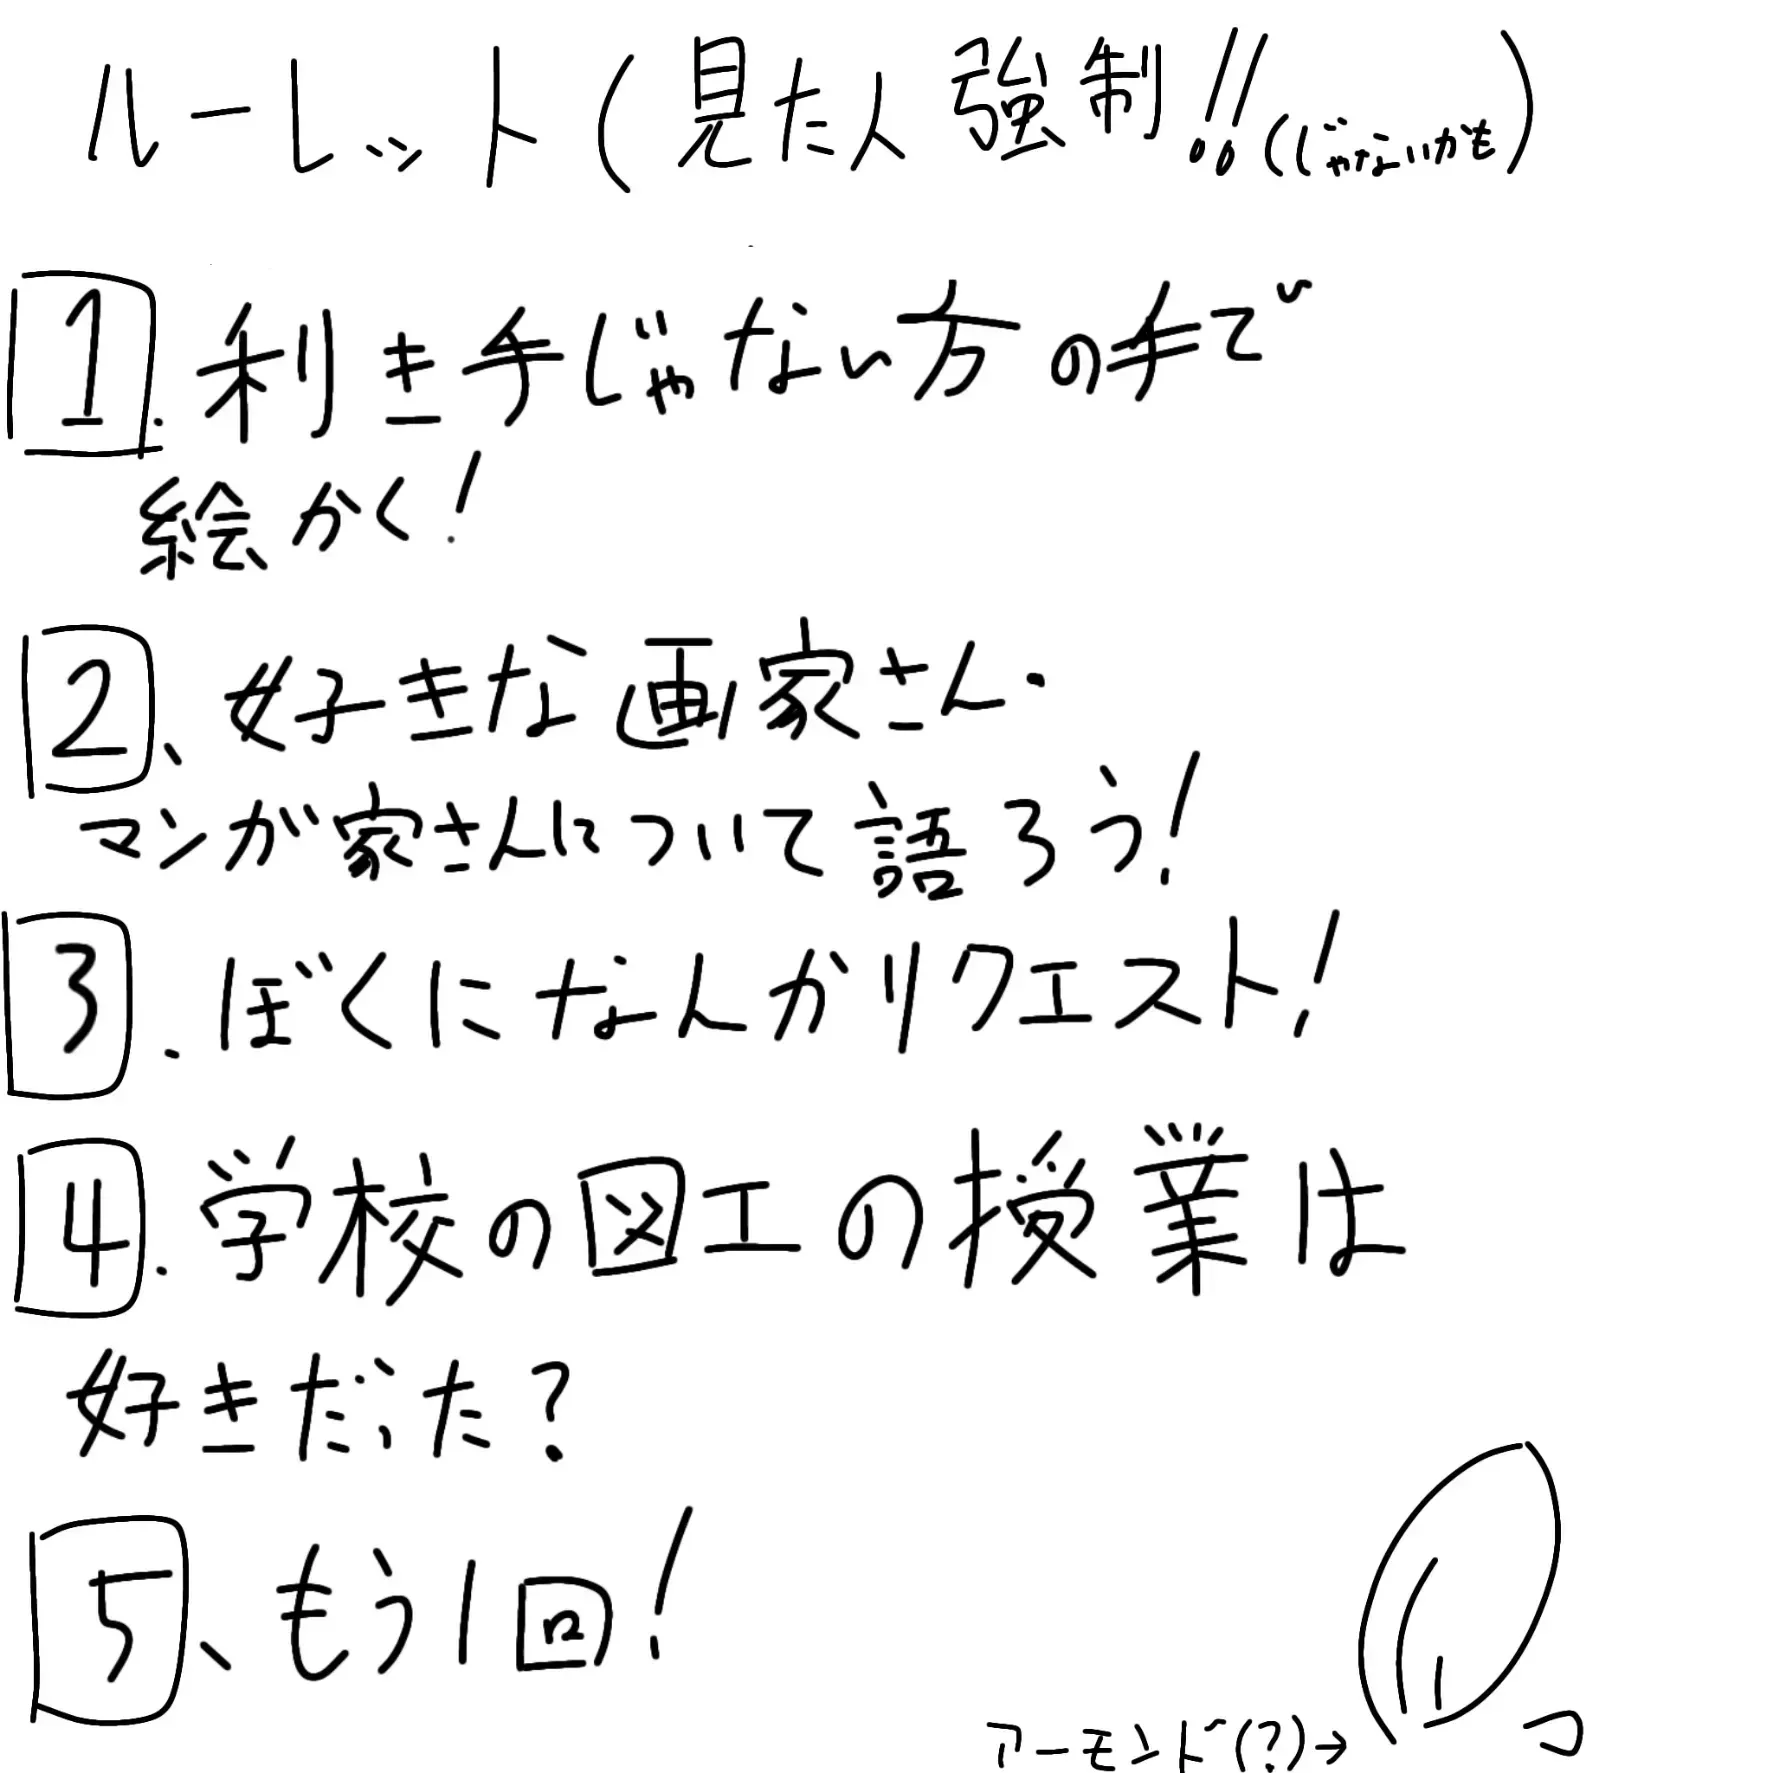 ルーレット(見た人強制!!(じゃないかも)
1.利き手じゃない方の手で
絵かく!
2、好きな画家さん・
マンが家さんについて語ろう!
3.ぼくになんかリクエスト!
4.学校の図工の授業は
好きだった?
5、もう1回!
アーモンド(?)→